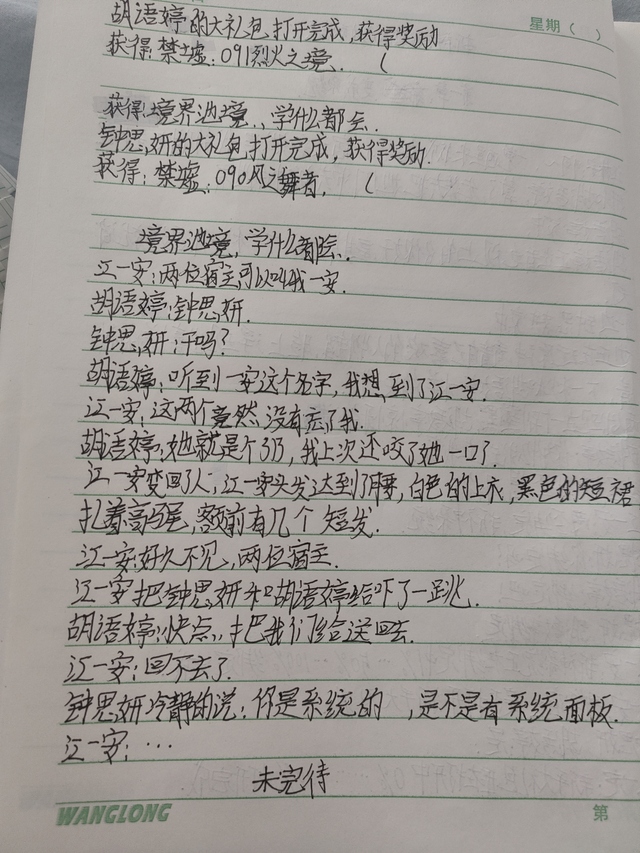 星期（ ）
胡语婷的大礼包,打开完成,获得奖励
获得:禁墟:091烈火之境. （
获得:境界池境,,学什么都会.
钟思,妍的大礼包,打开完成,获得奖励.
获得:禁墟:090风之舞者. （
境界池境,学什么都会..
江一安:两位宿主可以叫我一安.
胡语婷:钟思妍.
钟思,妍:干吗?
胡语婷:听到一安这个名字,我想到了江一安.
江一安:这两个竟然没有忘了我.
胡语婷:她就是个313,我上次还咬了她一口了.
江一安变回了人,江一安头发达到了腰,白色的上衣,黑色的短裙
扎着高马尾,额前有几个短发.
江一安:好久不见,两位宿主.
江一安把钟思妍和胡语婷给吓了一跳.
胡语婷:快点,,把我们给送回去.
江一安:回不去了.
钟思妍冷静的说:你是系统的 ,是不是有系统面板.
江一安:···
未完待
WANGLONG
第